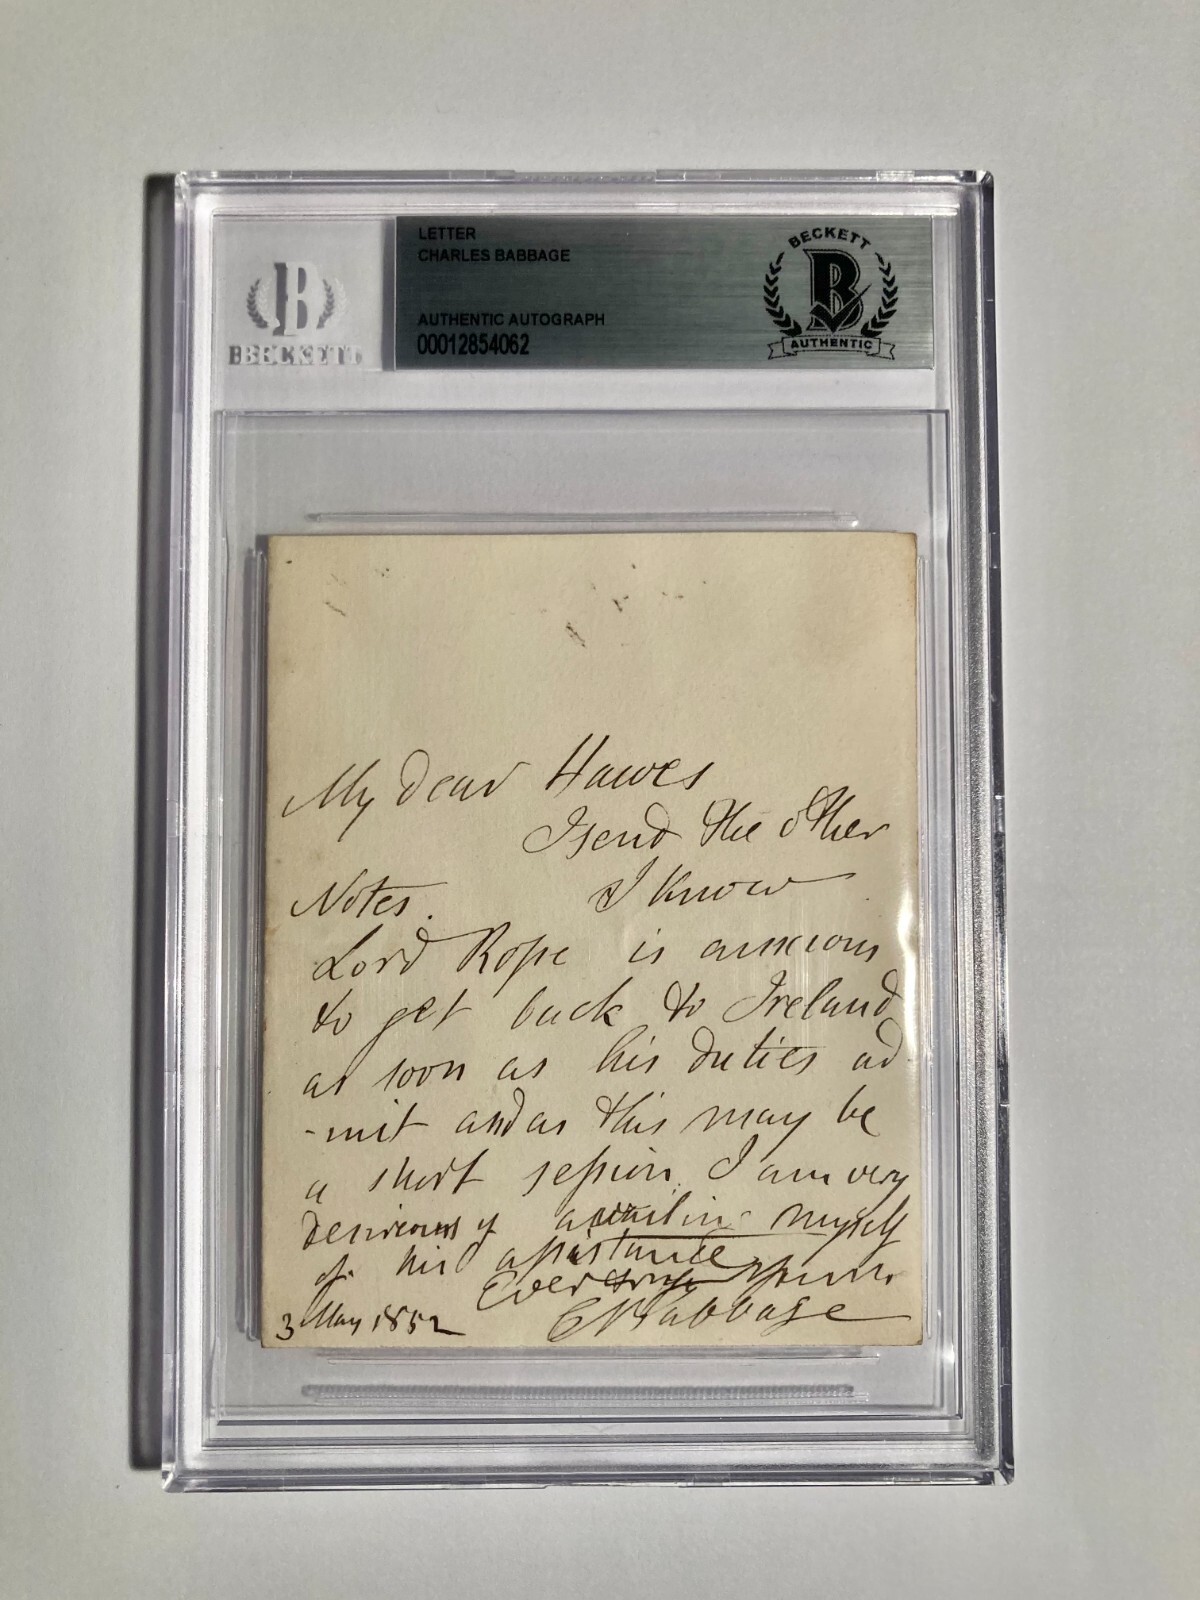 LETTER
CHARLES BABBAGE
AUTHENTIC AUTOGRAPH
00012854062
BECKETT
B
AUTHENTIC
B
BECKETT
My dear Hawes
I send the other
Notes. I know
Lord Rosse is anxious
to get back to Ireland
as soon as his duties ad
-mit and as this may be
a short session I am very
desirous of availing myself
of his assistance
Ever Yours
C Babbage
3 May 1852